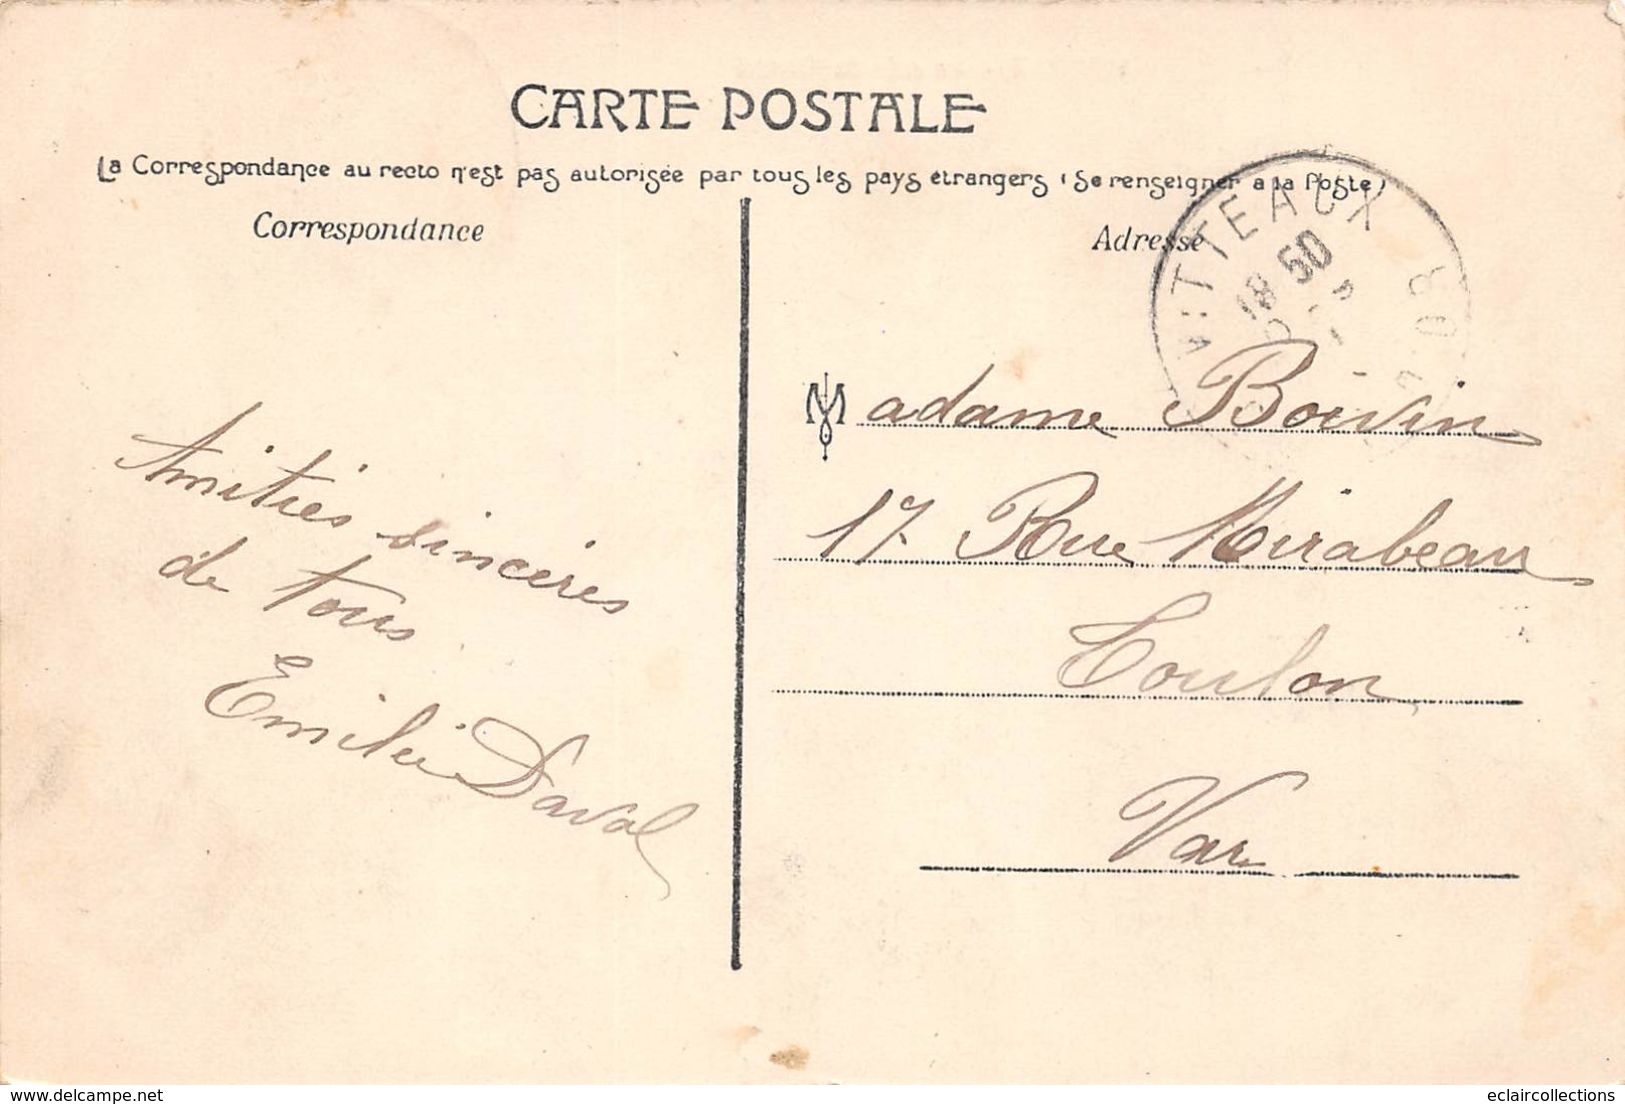 CARTE POSTALE
La Correspondance au recto n'est pas autorisée par tous les pays étrangers (Se renseigner à la Poste)
Correspondance
Adresse
VITTEAUX
18 50
Madame Boivin
17 Rue Mirabeau
Toulon
Var
Amitiés sincères
de tous
Emilie Daval
eclaircollections